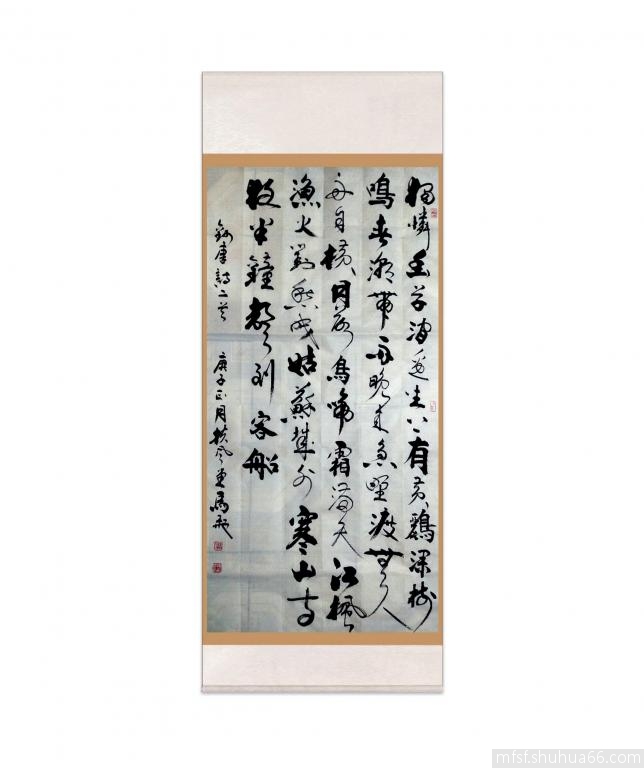 獨憐幽草澗邊生上有黃鸝深樹
鳴春潮帶雨晚來急野渡無人
舟自橫月落烏啼霜滿天江楓
漁火對愁眠姑蘇城外寒山寺
夜半鐘聲到客船
錄唐詩二首
庚子正月扶風堂馬
mfsf.shuhua66.com